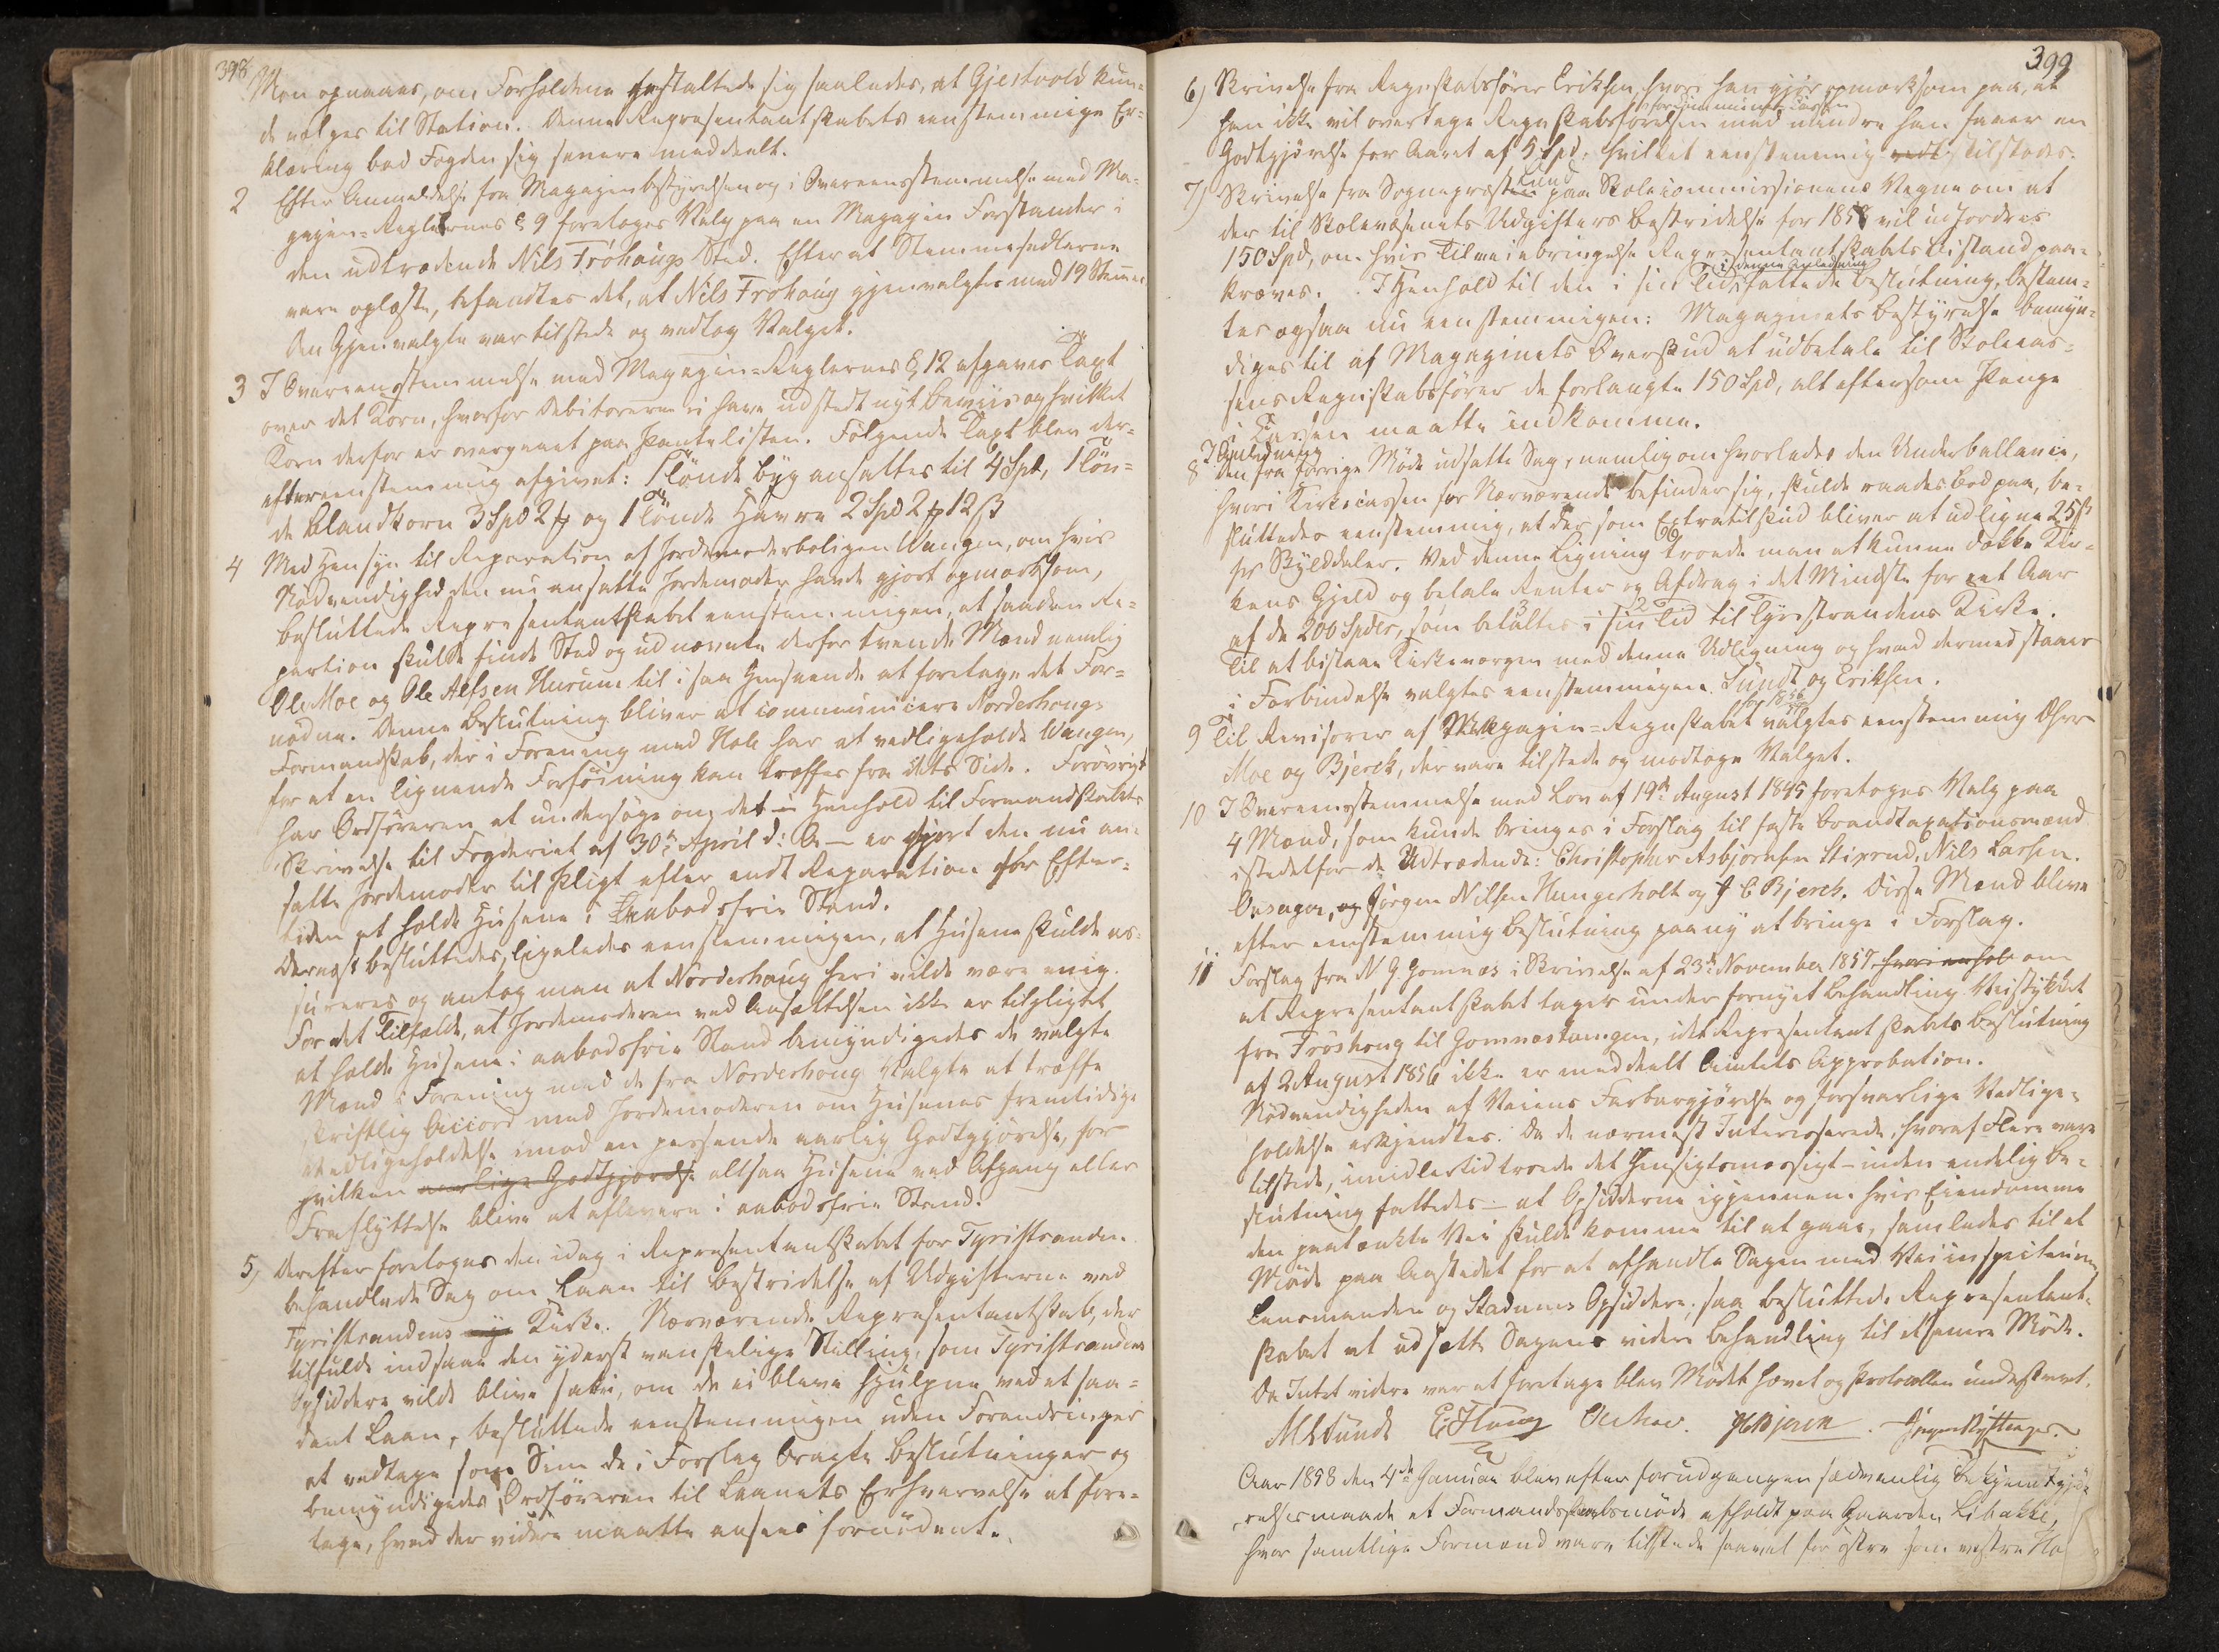 398
Men opnaaes, om Forholdene gestaltede sig saaledes, at Gjestvold kun-
de vælges til Station. Denne Repræsentantskabets eenstemmige Er-
klæring bad Fogden sig senere meddeelt.
2 Efter Anmeldelse fra Magazinbestyrelsen og i Overeensstemmelse med Ma-
gazin-Reglernes § 9 foretoges Valg paa en Magazin Forstander i
den udtrædende Nils Frøhaugs Sted. Efterat Stemmesedlerne
vare oplæste, befandtes det, at Nils Frøhaug gjenvalgtes med 19 Stemmer.
Den Gjenvalgte var tilstede og vedtog Valget.
3 I Overeensstemmelse med Magazin-Reglernes § 12 afgaves Taxt
over det Korn, hvorfor Debitorerne ei have udstedt nyt Beviis og hvilket
Korn derfor er overgaaet paa Pantelisten. Følgende Taxt blev der-
efter eenstemmig afgivet: 1 Tønde Byg ansattes til 4 Spd, 1 Tøn-
de Blandkorn 3 Spd 2 ₰ og 1 Tønde Havre 2 Spd 2 ₰ 12 ß
4 Med Hensyn til Reparation af Jordemoderboligen Vangen, om hvis
Nødvendighed den nu ansatte Jordemoder havde gjort opmærksom,
besluttede Repræsentantskabet eenstemmigen, at saadan Re-
paration skulde finde Sted og udnævnte derfor tvende Mænd nemlig
Ole Moe og Ole Alfsen Hurum til i saa Henseende at foretage det For-
nødne. Denne Beslutning bliver at communicere Norderhougs
Formandskab, der i Forening med Hole har at vedligeholde Vangen,
for at en lignende Forføining kan træffes fra dets Side. Forøvrigt
har Ordføreren at undersøge om det i Henhold til Formandskabets
Skrivelse til Fogderiet af 30te April d: A – er gjort den nu an-
satte Jordemoder til Pligt efter endt Reparation for Efter-
tiden at holde Husene i Aabodsfrie Stand.
Dernæst besluttedes, ligeledes eenstemmigen, at Husene skulde as-
sureres og antog man at Norderhoug heri vilde være enig.
For det Tilfælde, at Jordemoderen ved Ansættelsen ikke er tilpligtet
at holde Husene i aabodsfrie Stand bemyndigedes de valgte
Mænd i Forening med de fra Norderhoug Valgte at træffe
skriftlig Accord med Jordemoderen om Husenes fremtidige
Vedligeholdelse imod en passende aarlig Godtgjørelse, for
hvilken aarlige Godtgjørelse altsaa Husene ved Afgang eller
Fraflyttelse blive at aflevere i aabodsfrie Stand.
5, Derefter foretoges den idag i Repræsentantskabet for Tyristranden
behandlede Sag om Laan til Bestridelse af Udgifterne ved
Tyristrandens nye Kirke. Nærværende Repræsentantskab, der
tilfulde indsaae den yderst vanskelige Stilling, som Tyristrandens
Opsiddere vilde blive satte i, om de ei bleve hjulpne ved et saa-
dant Laan, besluttede eenstemmigen uden Forandringer
at vedtage som Sine de i Forslag bragte Beslutninger og
bemyndigedes Ordføreren til Laanets Erhvervelse at fore-
tage, hvad der videre maatte ansees fornødent.
399
6) Skrivelse fra Regnskabsfører Eriksen, hvori han gjør opmærksom paa, at
for Communecassen
han ikke vil overtage Regnskabsførelsen med mindre han faaer en
Godtgjørelse for Aaret af 5 Spd, hvilket eenstemmig vedt tilstodes.
7) Skrivelse fra Sognepræsten Lund paa Skolecommissionens Vegne om at
der til Skolevæsenets Udgifters Bestridelse for 1858 vil udfordres
150 Spd, om hvis Tilveiebringelse Repræsentantskabets Bistand paa-
i denne Anledning
kræves. I Henhold til den i sin Tid fattede Beslutning, bestem-
tes ogsaa nu eenstemmigen: Magazinets Bestyrelse bemyn-
diges til af Magazinets Overskud at udbetale til Skolecas-
sens Regnskabsfører de forlangte 150 Spd, alt eftersom Penge
i Cassen maatte indkomme.
I Anledning
8 den fra forrige Møde udsatte Sag, nemlig om hvorledes den Underballance,
hvori Kirkecassen for Nærværende befinder sig, skulde raades bod paa, be-
sluttedes eenstemmig, at der som Extratilskud bliver at udligne 25 ß
pr Skylddaler. Ved denne Ligning troede man at kunne dække Kir-
kens Gjeld og betale Renter og Afdrag i det Mindste for eet Aar
af de 200 Spdlr, som betaltes i sin Tid til Tyristrandens Kirke.
Til at bistaae Kirkeværgen med denne Udligning og hvad dermed staaer
i Forbindelse valgtes eenstemmigen Sundt og Eriksen.
for 1856
9 Til Revisorer af Magazin-Regnskabet valgtes eenstemmig Dhrr
Moe og Bjerck, der vare tilstede og modtoge Valget.
10 I Overeensstemmelse med Lov af 19de August 1845 foretoges Valg paa
4 Mænd, som kunde bringes i Forslag til faste Brandtaxationsmænd
istedetfor de Udtrædende: Christopher Asbjørnsen Stixrud, Nils Larsen
Onsager, og Jørgen Nilsen Hungerholt og J C Bjerck. Disse Mænd bleve
efter eenstemmig Beslutning paany at bringe i Forslag.
11 Forslag fra N G Gomnæs i Skrivelse af 23de November 1857 hvori anhol om
at Repræsentantskabet tager under fornyet Behandling Veistykket
fra Frøshoug til Gomnæstangen, idet Repræsentantskabets Beslutning
af 2 August 1856 ikke er meddeelt Amtets Approbation.
Nødvendigheden af Veiens Farbargjørelse og forsvarlige Vedlige-
holdelse erkjendtes. Da de nærmest Interesserede, hvoraf Flere vare
tilstede, imidlertid troede det hensigtsmæssigt – inden endelig Be-
slutning fattedes – at Opsidderne igjennem hvis Eiendomme
den paatænkte Vei skulde komme til at gaae, samledes til et
Møde paa Aastedet for at afhandle Sagen med Veiinspecteuren
Lensmanden og Stadums Opsiddere, saa besluttede Repræsentant-
skabet at udsette Sagens videre Behandling til et senere Møde.
Da Intet videre var at foretage blev Mødet hævet og Protocollen underskrevet.
Sundt E. Haug Ole Moe. JC Bjerck.
Aar 1858 den 4de Januar blev efter forudgangen sædvanlig Bekjendtgjø-
relsesmaade et Formandskabsmøde afholdt paa Gaarden Libakke,
hvor samtlige Formænd vare tilstede saavel for østre som vestre Ho